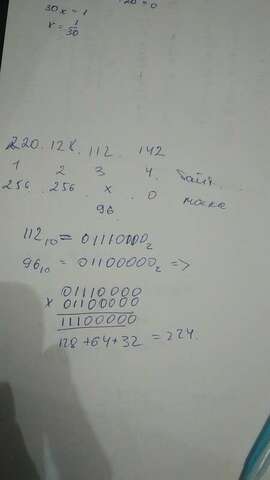 120 = 0
30x = 1
x = 1/30
220. 128. 112. 142
1 2 3 4. байт...
256. 256. x . 0 маска
96.
112₁₀ = 01110000₂
96₁₀ = 01100000₂ =>
01110000
x 01100000
11100000
128 + 64 + 32 = 224.